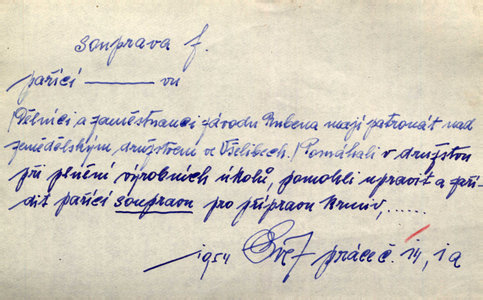 souprava f.
pařící ——— vu
/Dělníci a zaměstnanci závodu Rubena mají patronát nad
zemědělským družstvem ve Všelibech./ Pomáhali v družstvu
při plnění výrobních úkolů, pomohli upravit a zaří-
dit pařící soupravu pro přípravu krmiv, ......
1954 Svěť práce č. 14, 1a